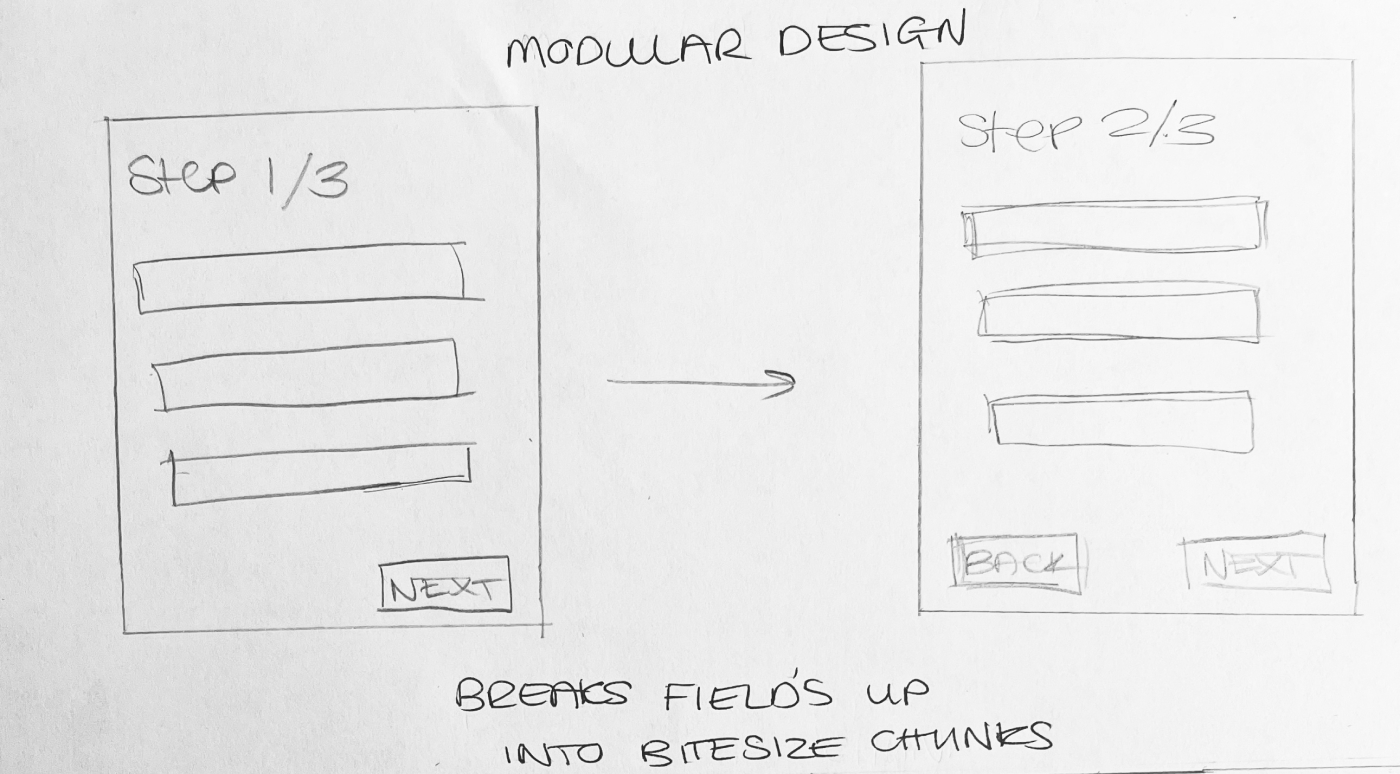 MODULAR DESIGN
Step 1/3
NEXT
Step 2/3
BACK
NEXT
BREAKS FIELD'S UP
INTO BITESIZE CHUNKS